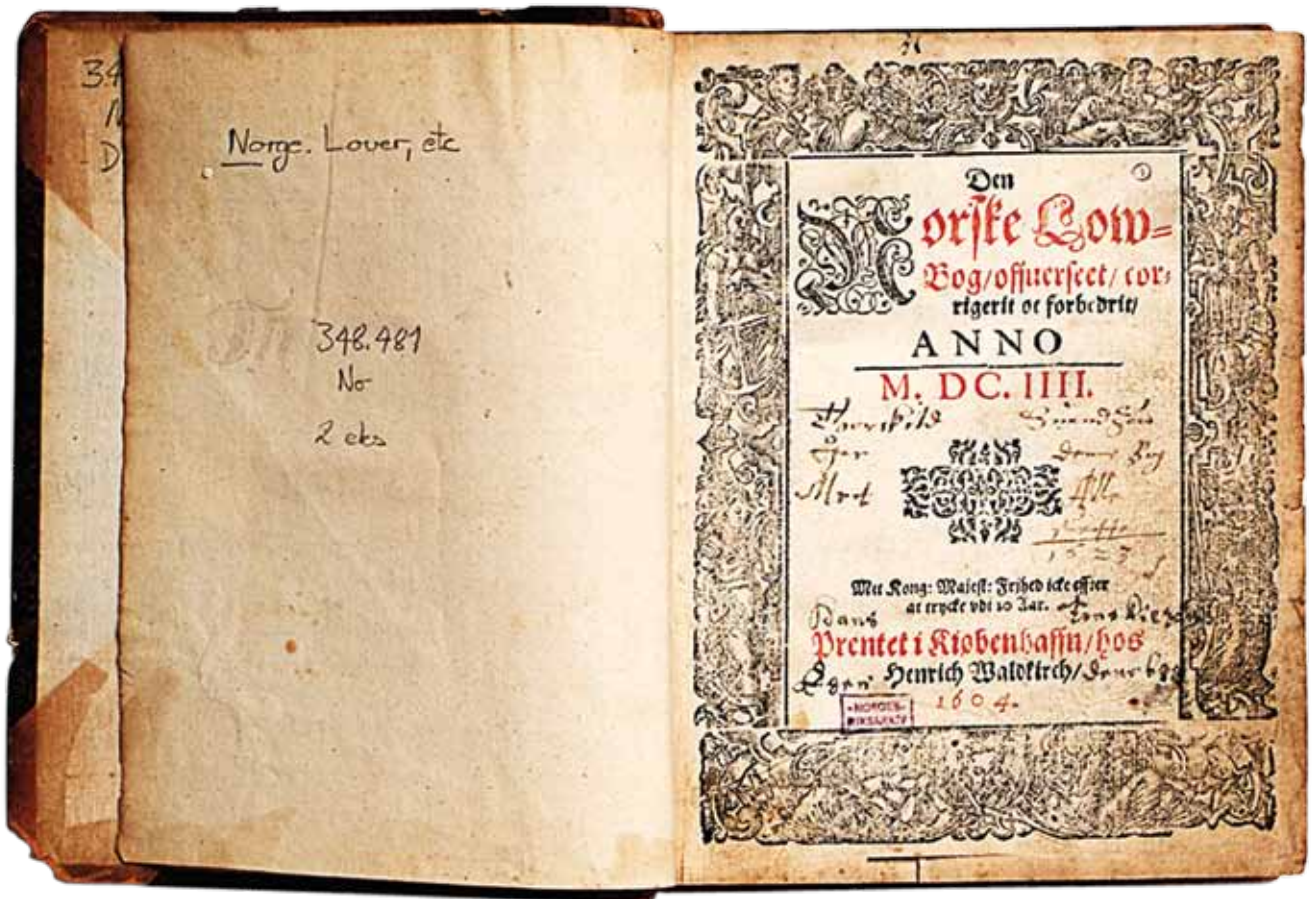 34
N
D
Norge. Lover, etc
348.481
No
2 eks
Den
Norske Low=
Bog/offuerseet/ cor=
rigerit oc forbedrit/
ANNO
M. DC. IIII.
Met Kong: Maiest: Frjhed icke effter
at trycke vdi 10 Aar.
Hans
Prentet i Kiøbenhaffn/hos
Henrich Waldkirch/
1604.
NORGES
RIKSARKIV